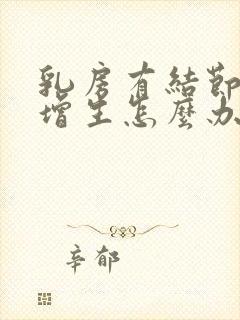 乳房有結節
增生怎麼办
辛郁